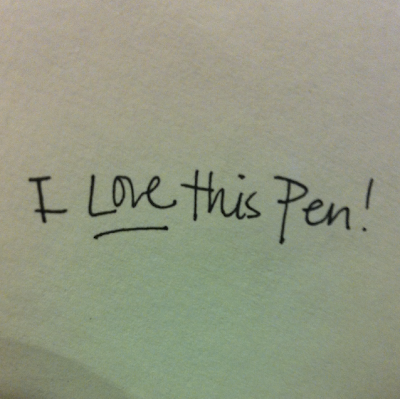 I Love this Pen!